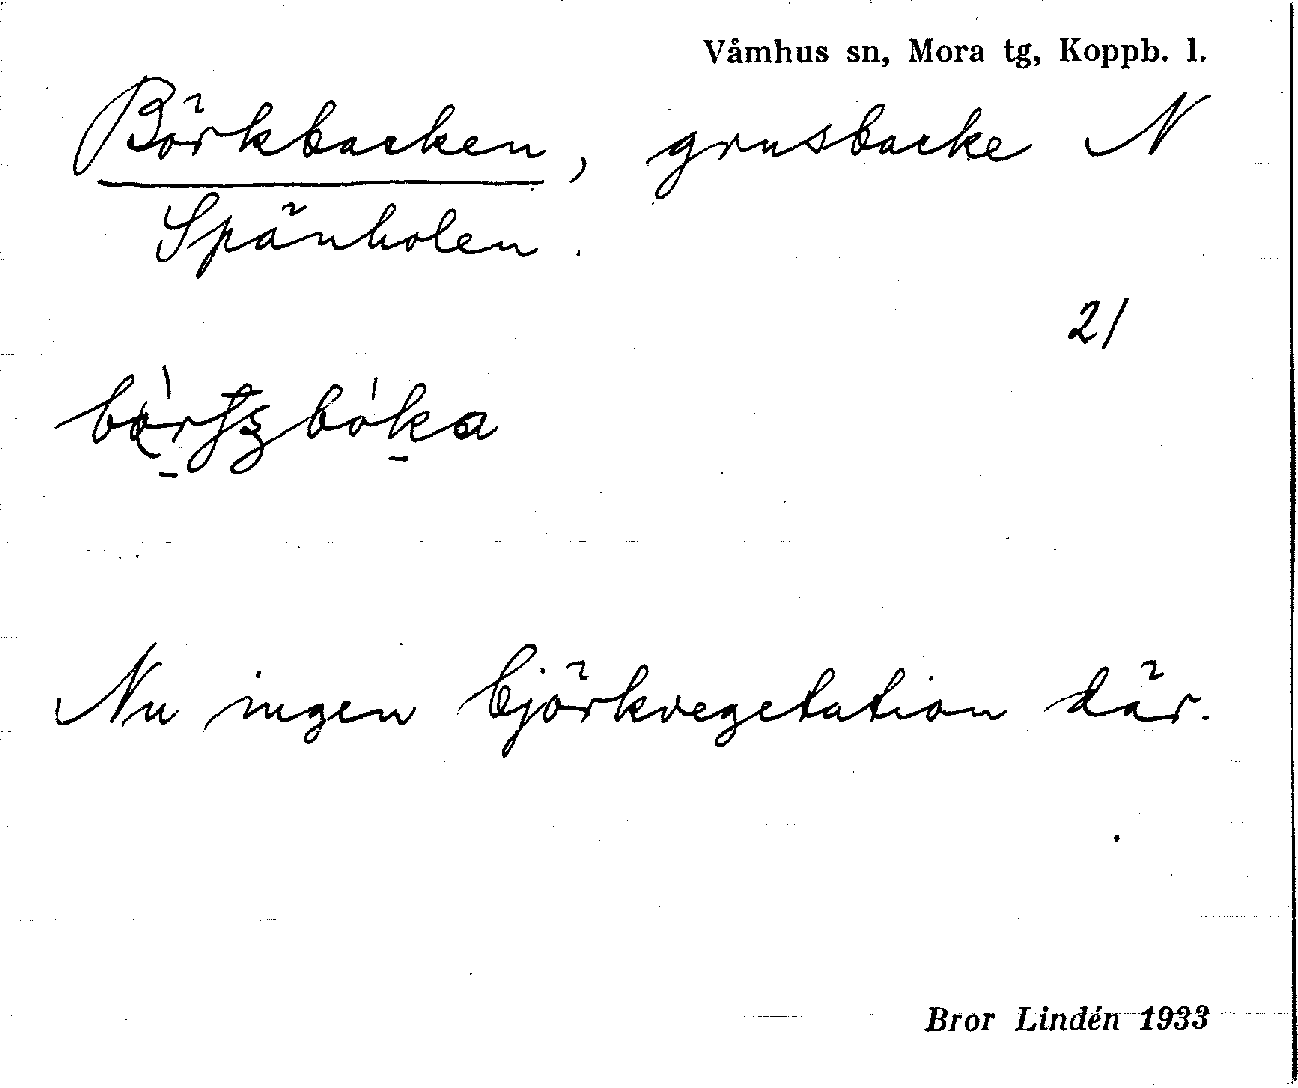 Våmhus sn, Mora tg, Koppb. l.
Börkbacken, grusbacke N
Spånholen.
21
Nu ingen björkvegetation där.
Bror Lindén 1933